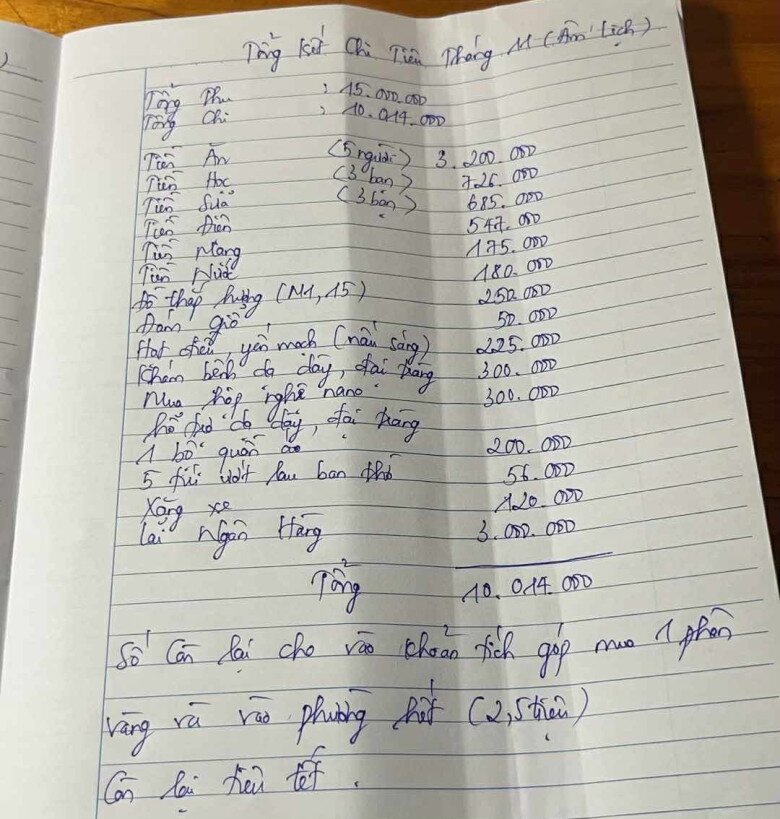 )
Tổng Kết Chi Tiêu Tháng 11 (Âm Lịch)
Tổng Thu : 15.000.000
Tổng Chi : 10.014.000
Tiền Ăn (5 người) 3.200.000
Tiền Học (3 bạn) 726.000
Tiền Sữa (3 bạn) 685.000
Tiền Điện 547.000
Tiền Mạng 175.000
Tiền Nước 180.000
Đồ thắp hương (M1, 15) 250.000
Đám giỗ 50.000
Hạt điều, yến mạch (nấu sáng) 225.000
Khám bệnh dạ dày, đại tràng 300.000
Mua hộp nghệ nano 300.000
hỗ trợ dạ dày, đại tràng
1 bộ quần áo 200.000
5 túi ướt lau ban thờ 56.000
Xăng xe 120.000
Lãi Ngân Hàng 3.000.000
Tổng 10.014.000
Số Còn lại cho vào khoản tích góp mua 1 phần
vàng và vào phường hết (2,5 triệu)
Còn lại tiêu tết.